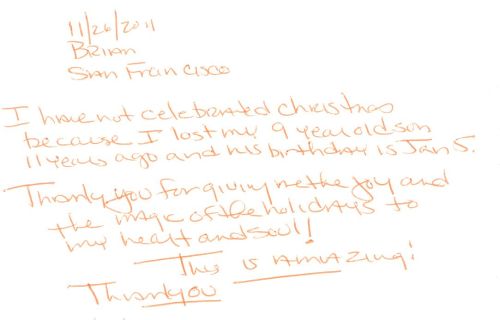 11/26/2011
Brian
San Francisco
I have not celebrated christmas
because I lost my 9 year old son
11 years ago and his birthday is Jan 5.
Thank you for giving me the joy and
the magic of the holidays to
my heart and soul!
This is AMAZING!
Thank you